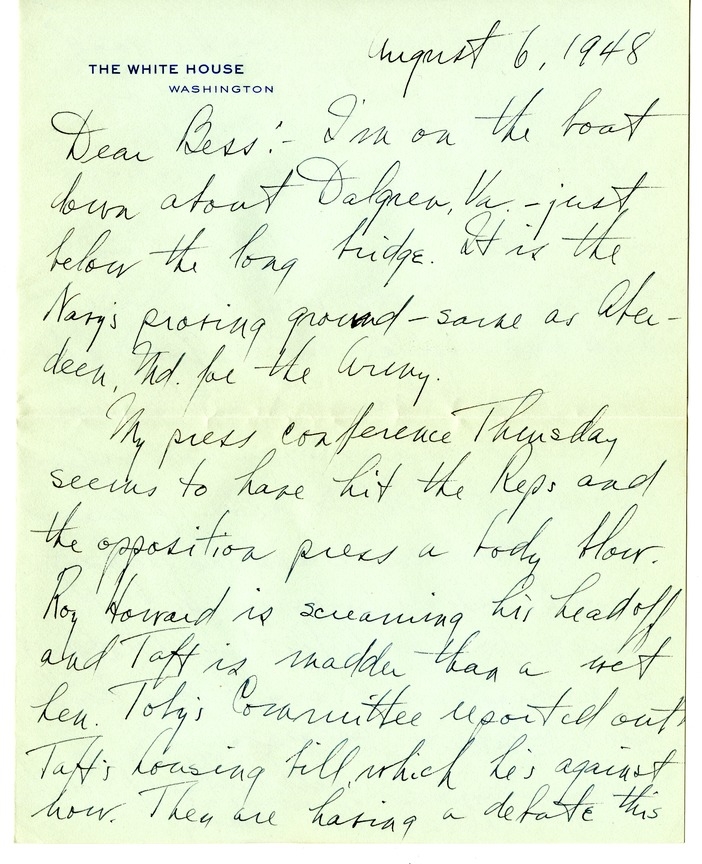 August 6, 1948
THE WHITE HOUSE
WASHINGTON
Dear Bess:- I'm on the boat
down about Dalgren, Va. - just
below the long bridge. It is the
Navy's proving ground - same as Aber-
deen, Md. for the Army.
My press conference Thursday
seems to have hit the Reps and
the opposition press a body blow.
Roy Howard is screaming his head off
and Taft is madder than a wet
hen. Toby's Committee reported out
Taft's housing bill, which he's against
now. They are having a debate this